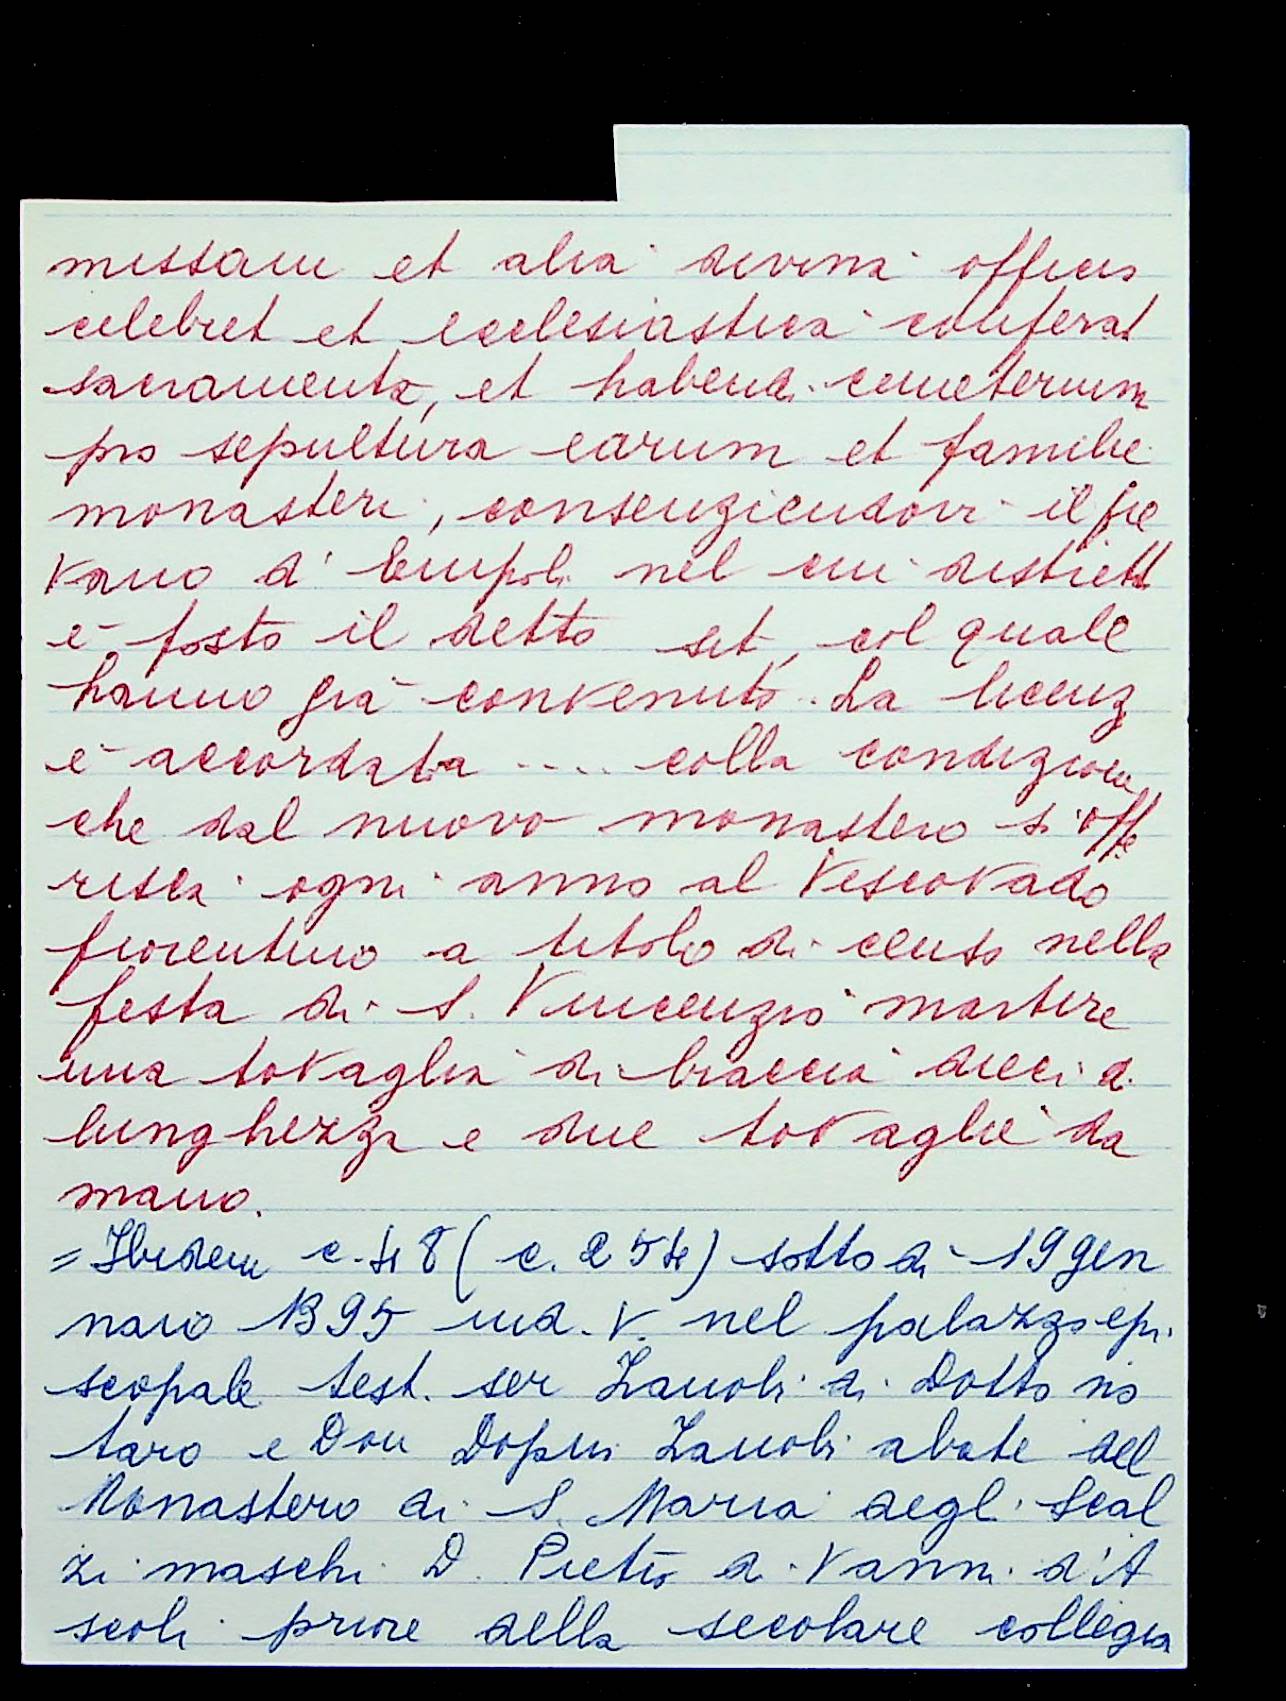 missam et alia divina officia
celebret et ecclesiastica conferat
sacramenta, et habendi cemeterium
pro sepultura earum et familie
monasteri, consenziendovi il pie
vano d'Empoli nel cui distrett
è posto il detto sit, col quale
hanno già convenuto. La licenz
è accordata .... colla condizione
che dal nuovo monastero si offe
risca ogni anno al Vescovado
fiorentino a titolo di censo nella
festa di S. Vincenzio martire
una tovaglia di braccia dieci di
lunghezza e due tovaglie da
mano.
= Ibidem c. 48 (c. 254) sotto di 19 gen
naio 1395 ind. V. nel palazzo epi
scopale test. ser Zanobi di Dotto no
taro e Don Zanobi abate del
Monastero di S. Maria degli Scal
zi maschi D. Pietro di Vanni d'A
scoli priore della secolare collegia